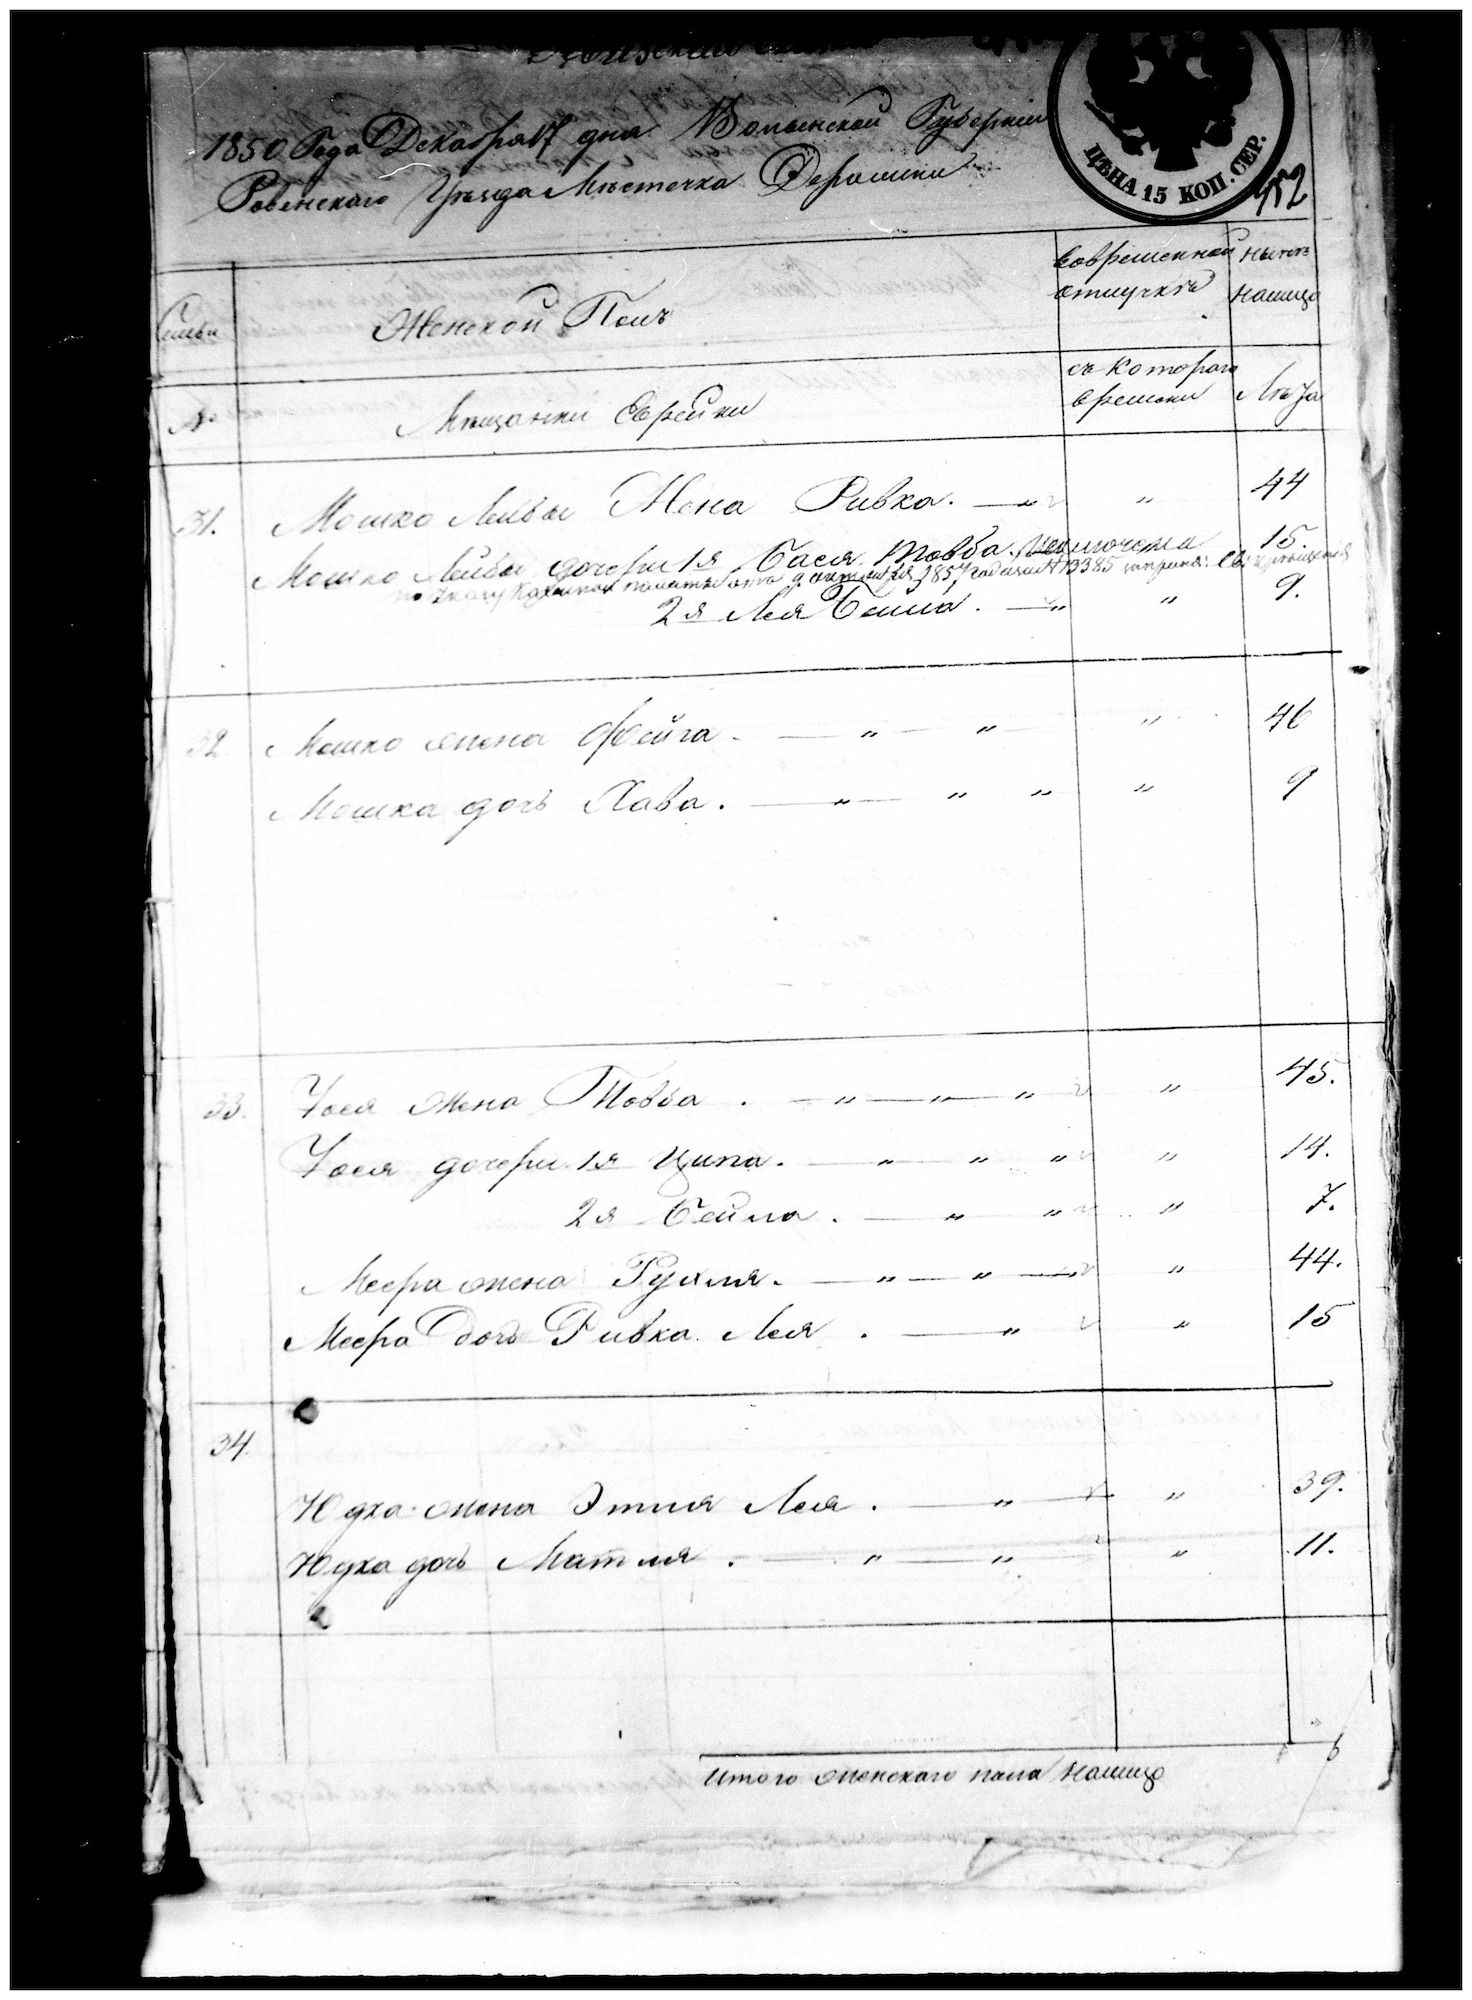 1850 Года Декабря 17 дня Волынской Губернии
ЦѢНА 15 КОП. СЕР.
Ровенского Уѣзда Мѣстечка Деражни
452
Семьи
Женской Полъ
Во временной отлучкѣ
Нынѣ на лицо
№
Мѣщанки Еврейки
съ котораго времени
Лѣта
31. Мошко Лейбы Жена Ривка. — " " 44
Мошко Лейбы дочери 1я Бася Товба. исключена 15.
по указу Казенной палаты отъ 9 1857 года за № 13385
2я Лея Бейла. — " " 9.
32. Мошко жена Фейга. — " — " " 46
Мошка дочь Хава. — " — " " " 9
33. Іося жена Товба. — " — " — " " 45.
Іося дочери 1я Ципа. — " " " " 14.
2я Бейла. — " " " 7.
Меера жена Рухля. — " — " — " 44.
Меера дочь Ривка Лея. — " " 15
34.
Юдка жена Этля Лея. — " — " 39.
Юдка дочь Матля. — " — " — " 11.
Итого женского пола на лицо